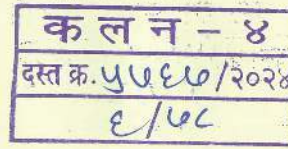 क ल न - ४
दस्त क्र. ५७६७/२०२४
६/७८